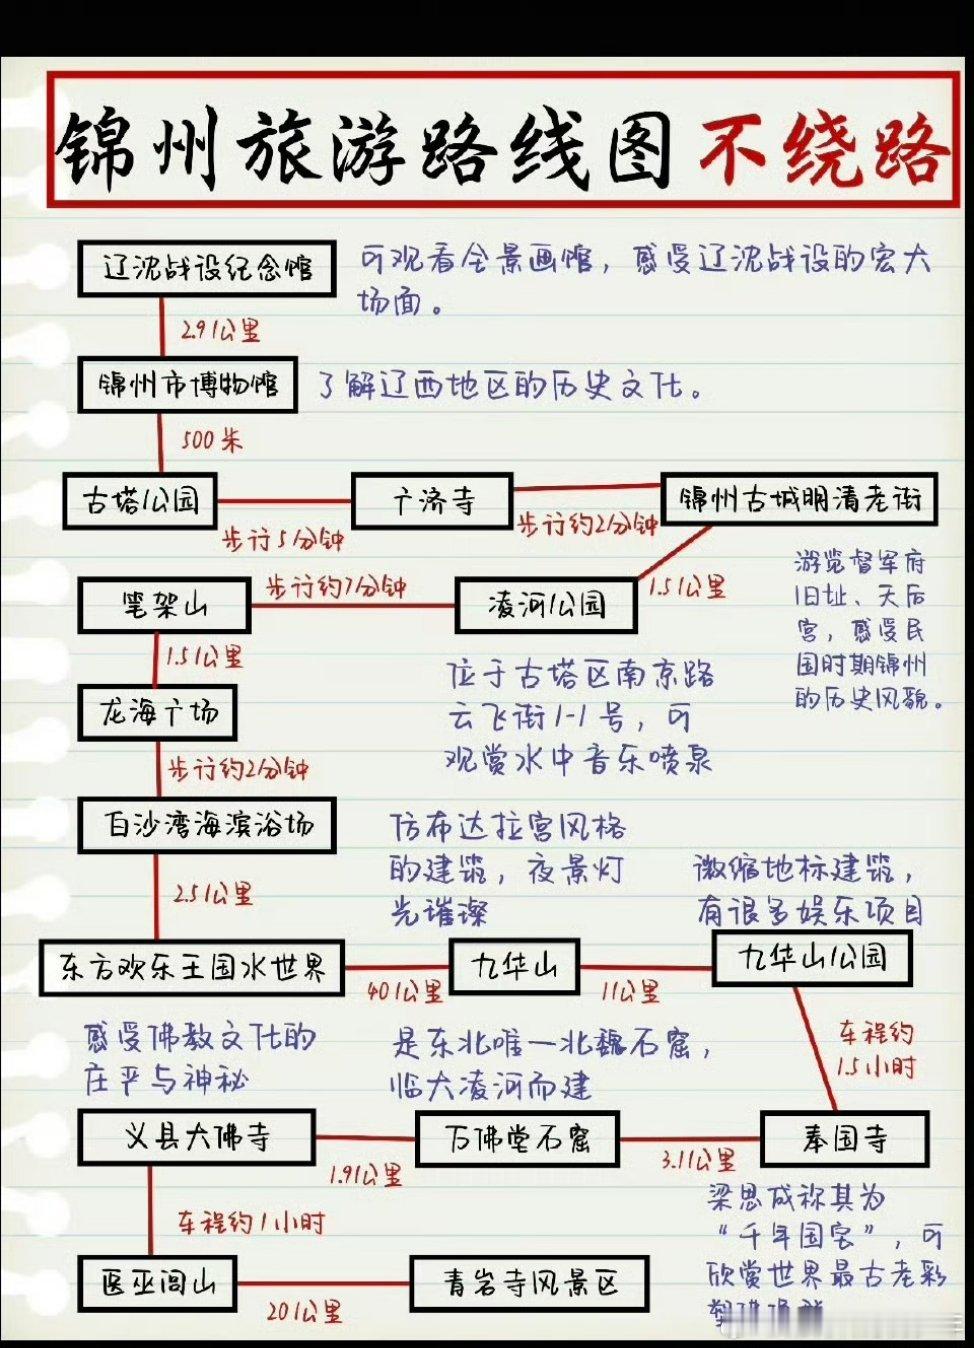 锦州旅游路线图不绕路
辽沈战役纪念馆
可观看全景画馆，感受辽沈战役的宏大
场面。
2.9公里
锦州市博物馆
了解辽西地区的历史文化。
500米
古塔公园
步行5分钟
广济寺
步行约2分钟
锦州古城明清老街
游览督军府
旧址、天后
宫，感受民
国时期锦州
的历史风貌。
1.5公里
凌河公园
位于古塔区南京路
云飞街1-1号，可
观赏水中音乐喷泉
步行约7分钟
笔架山
1.5公里
龙海广场
步行约2分钟
白沙湾海滨浴场
2.5公里
东方欢乐王国水世界
40公里
仿布达拉宫风格
的建筑，夜景灯
光璀璨
九华山
11公里
微缩地标建筑，
有很多娱乐项目
九华山公园
车程约
1.5小时
奉国寺
梁思成称其为
“千年国宝”，可
欣赏世界最古老彩
3.1公里
是东北唯一北魏石窟，
临大凌河而建
万佛堂石窟
1.9公里
感受佛教文化的
庄严与神秘
义县大佛寺
车程约1小时
医巫闾山
20公里
青岩寺风景区